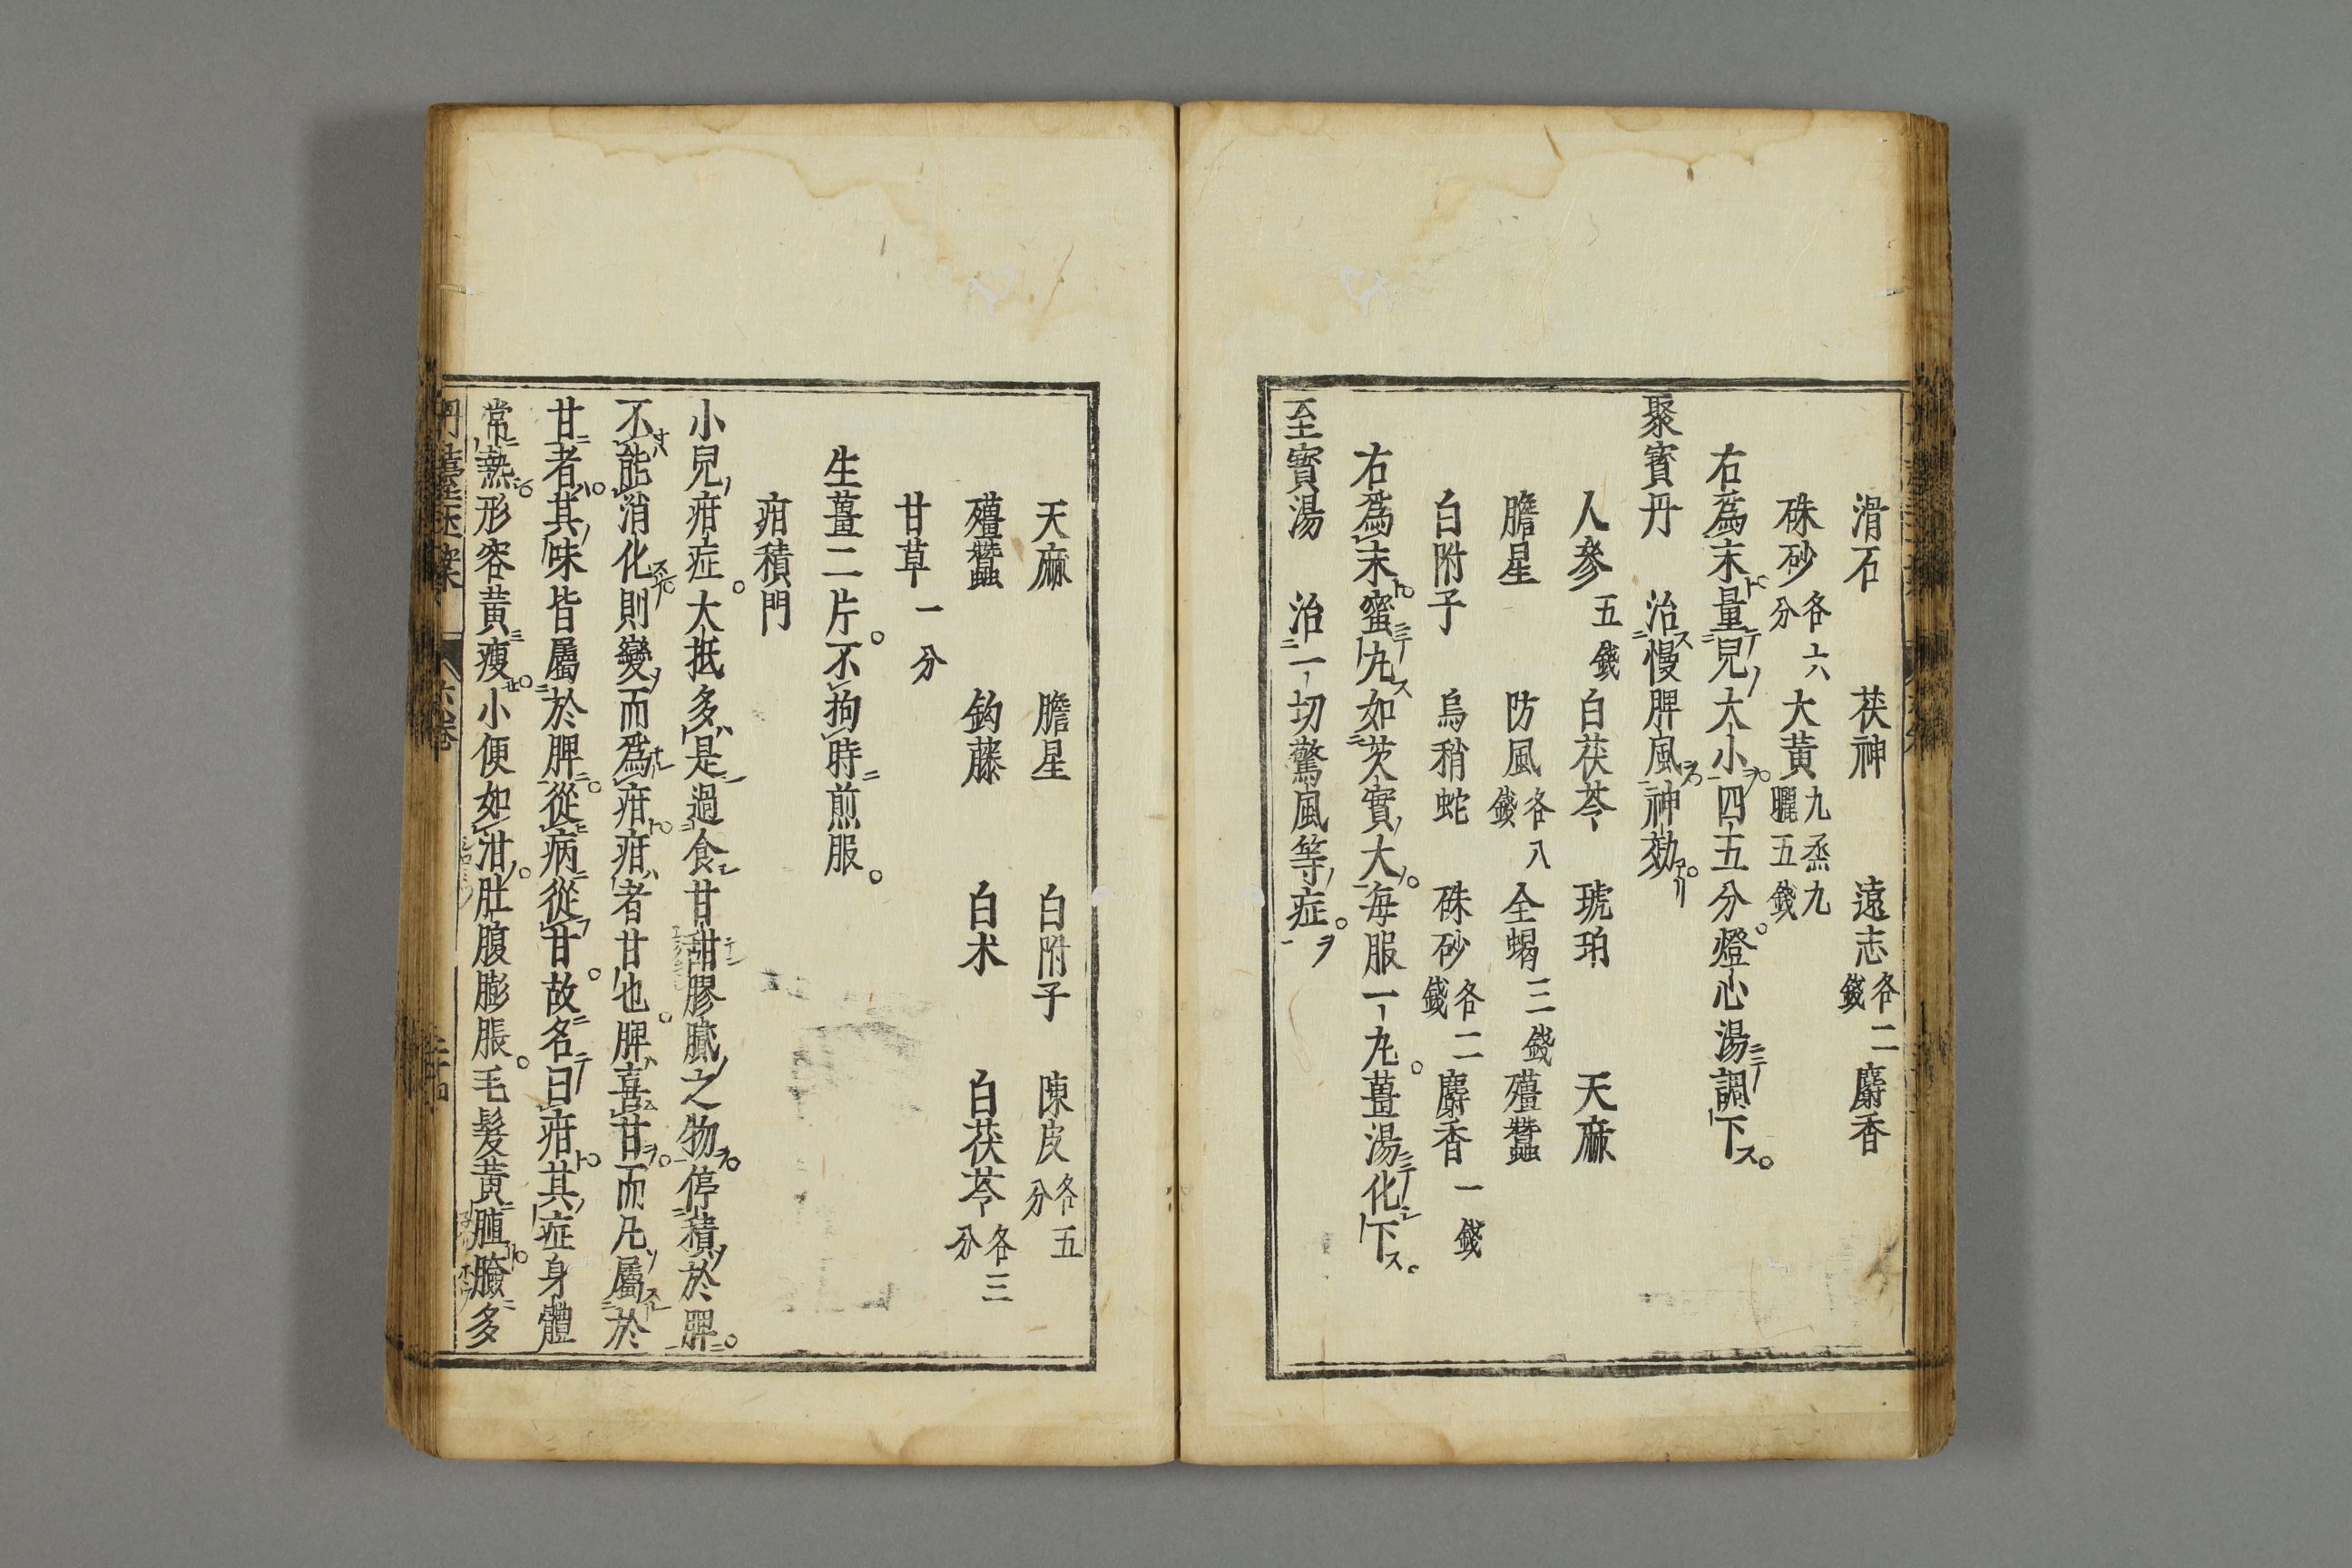 滑石　茯神　遠志各二錢　麝香
硃砂各六分　大黃九烝九曬五錢
右爲末量兒大小四五分燈心湯調下。
聚寳丹　治慢脾風神効。
人參五錢　白茯苓　琥珀　天麻
膽星　防風各八錢　全蝎三錢　殭蠶
白附子　烏稍蛇　硃砂各二錢　麝香一錢
右爲末蜜丸如芡實大。每服一丸。薑湯化下。
至寳湯　治一切驚風等症。
天麻　膽星　白附子　陳皮各五分
殭蠶　鈎藤　白朮　白茯苓各三分
甘草一分
生薑二片。不拘時煎服。
疳積門
小兒疳症。大抵多是過食甘甜膠膩之物。停積於脾。
不能消化則變而爲疳。疳者甘也。脾喜甘。而凡屬於
甘者。其味皆屬於脾。從病從甘。故名曰疳。其症身體
常熱。形容黃瘦。小便如泔。肚腹膨脹。毛髮黃䐈臉多
六卷